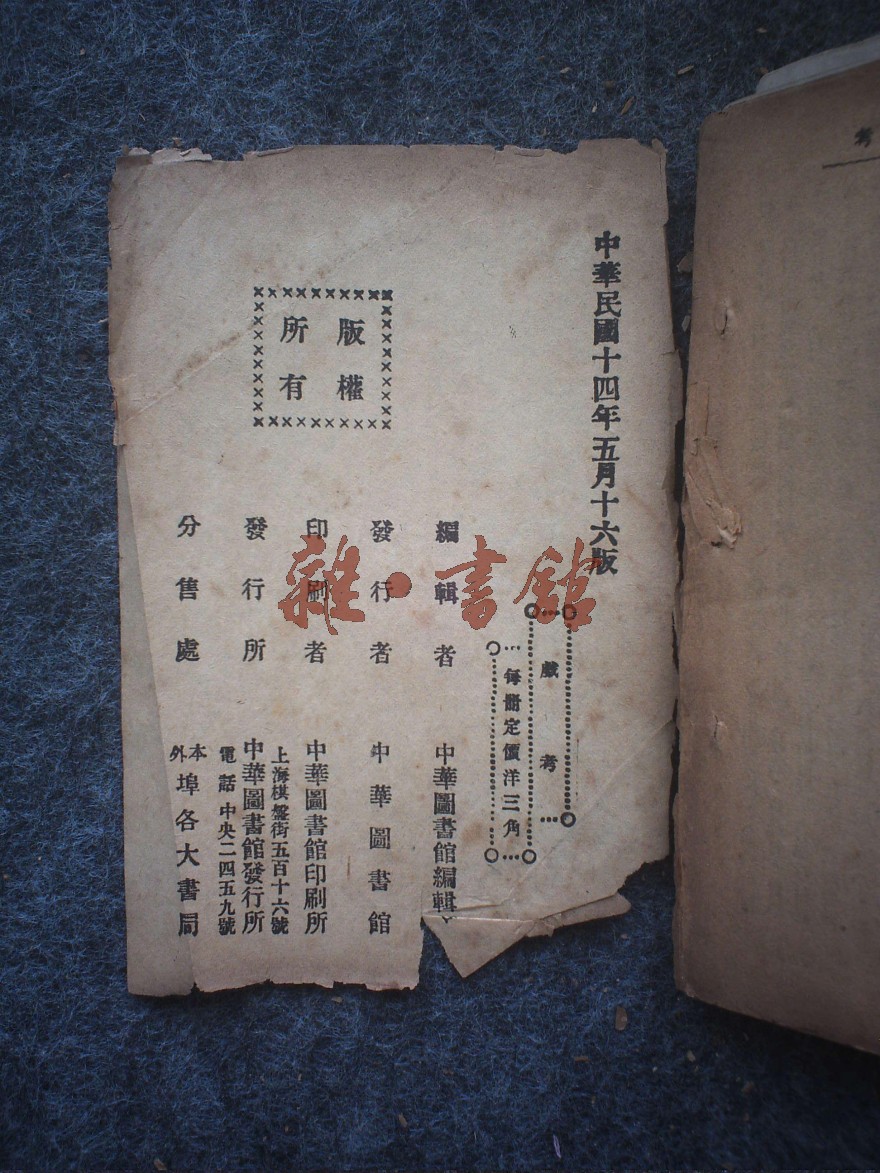 中華民國十四年五月十六版
戲考
每冊定價洋三角
編輯者 中華圖書館編輯
發行者 中華圖書館
印刷者 中華圖書館印刷所
上海棋盤街五百十六號
發行所 中華圖書館發行所
電話中央二四五九號
分售處 本外埠各大書局
版權所有
雜·書館
考